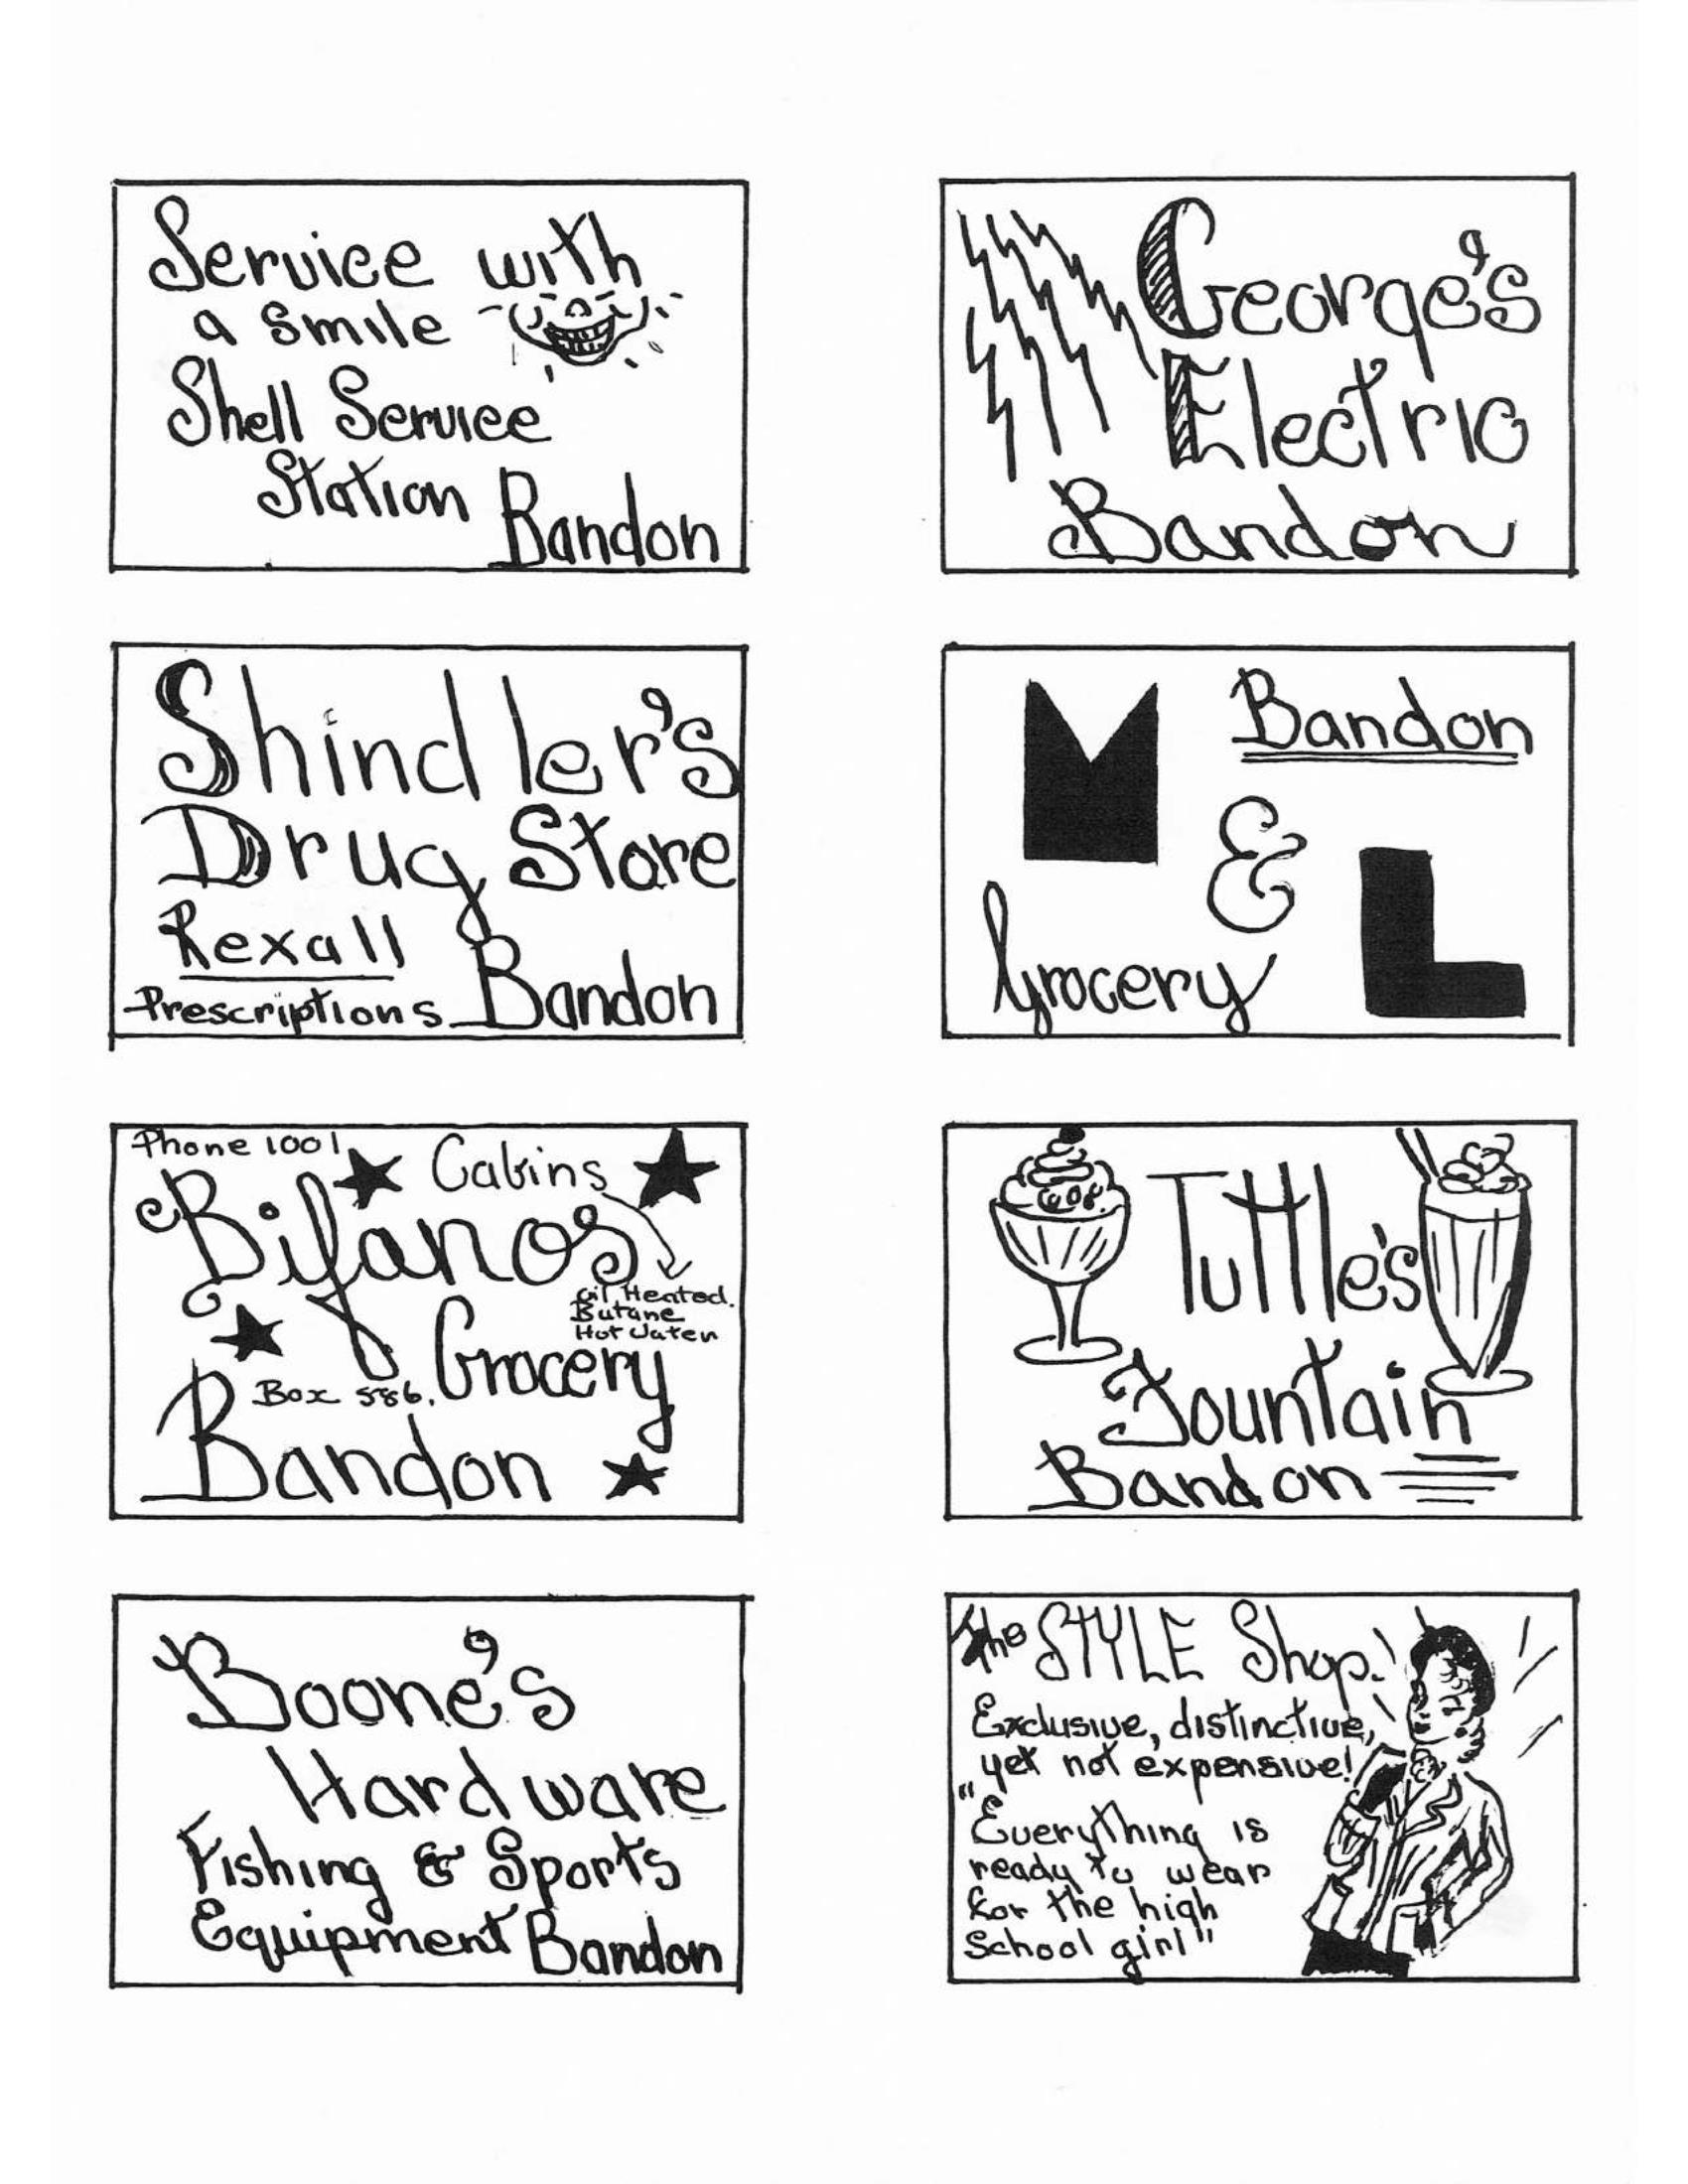 Service with
a Smile
Shell Service
Station Bandon
George's
Electric
Bandon
Shindler's
Drug Store
Rexall
Prescriptions Bandon
M Bandon
&
Grocery L
Phone 1001 Cabins
Bifanos
Oil Heated.
Butane
Hot Water
Box 586. Grocery
Bandon
Tuttle's
Fountain
Bandon
Boone's
Hardware
Fishing & Sports
Equipment Bandon
The STYLE Shop.
Exclusive, distinctive,
yet not expensive!
"Everything is
ready to wear
for the high
School girl"